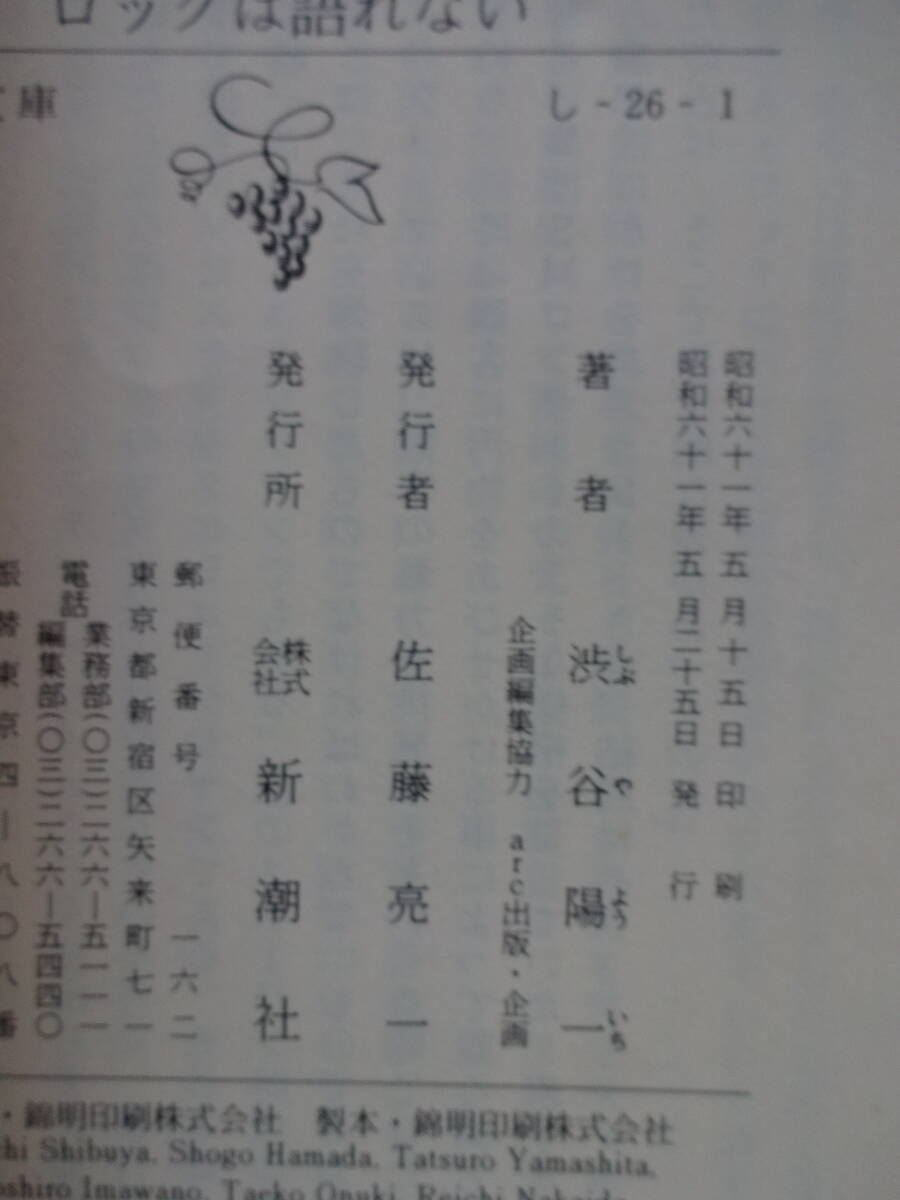 ロックは語れない
文庫
し-26-1
昭和六十一年五月十五日 印刷
昭和六十一年五月二十五日 発行
著者 渋谷陽一
しぶ や よう いち
企画編集協力 arc出版・企画
発行者 佐藤亮一
発行所 株式会社 新潮社
郵便番号 一六二
東京都新宿区矢来町七一
電話 業務部(〇三)二六六―五一一一
編集部(〇三)二六六―五四四〇
振替東京四―八〇八番
・錦明印刷株式会社 製本・錦明印刷株式会社
chi Shibuya, Shogo Hamada, Tatsuro Yamashita,
oshiro Imawano, Taeko Onuki, Reichi Nakaido